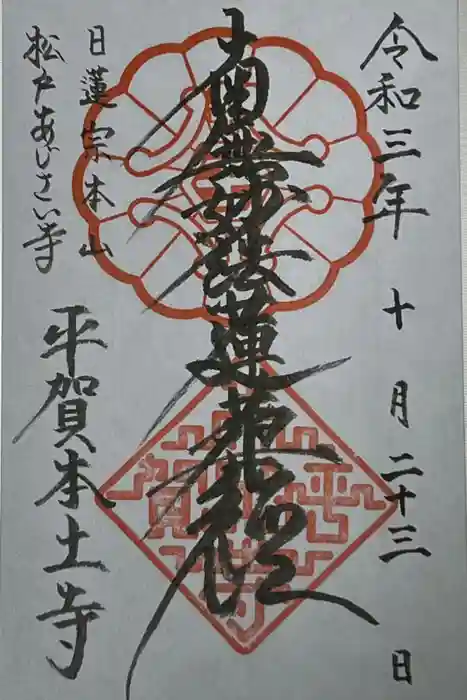 令和三年 十月二十三日
南無妙法蓮華経
日蓮宗本山
松戸あじさい寺
平賀本土寺